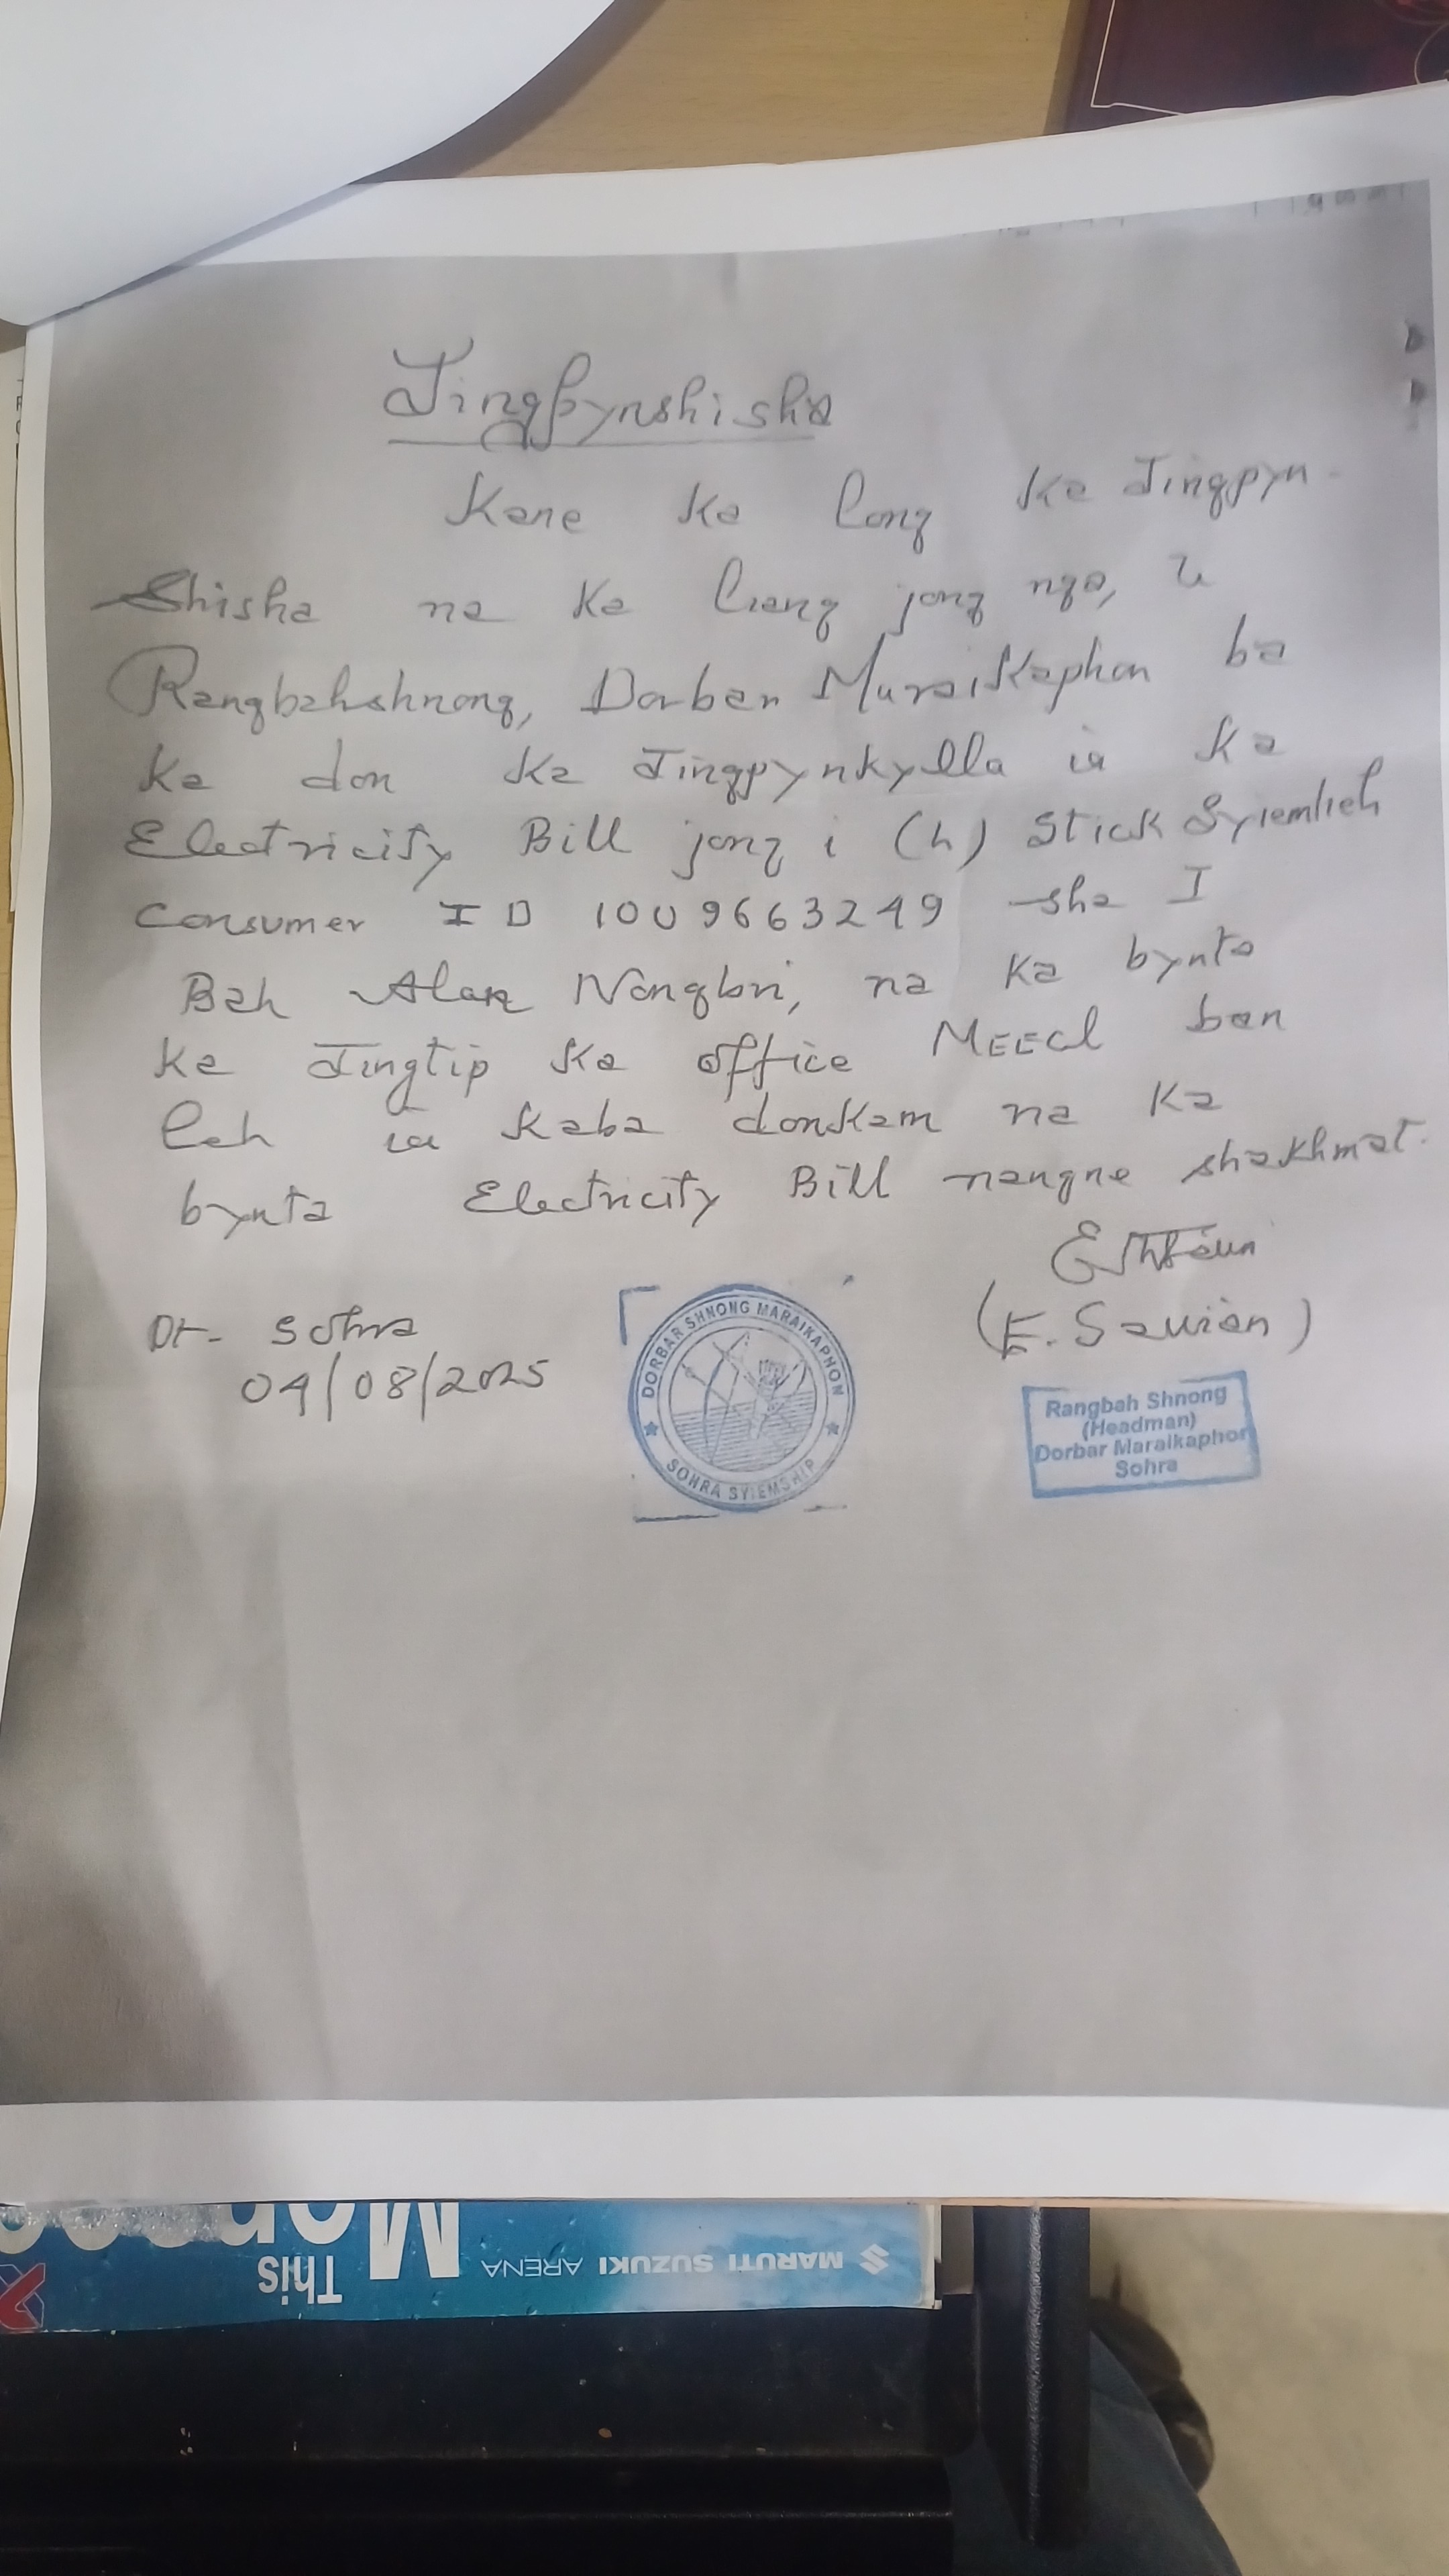 Jingpynshisha
Kane ka long ka Jingpyn-
shisha na ka liang jong nga, u
Rangbahshnong, Dorbar Maraikaphon ba
ka don ka Jingpynkylla ia ka
Electricity Bill jong i (L) Stick Syiemlieh
Consumer ID 1009663249 sha I
Bah Alan Nongbri, na ka bynta
ka Jingtip ka office MEECL ban
leh ia kaba donkam na ka
bynta Electricity Bill nangne shakhmat.
(E. Sawian)
Dt- Sohra
04/08/2025
DORBAR SHNONG MARAIKAPHON
SOHRA SYIEMSHIP
Rangbah Shnong
(Headman)
Dorbar Maraikaphon
Sohra
MARUTI SUZUKI ARENA
This